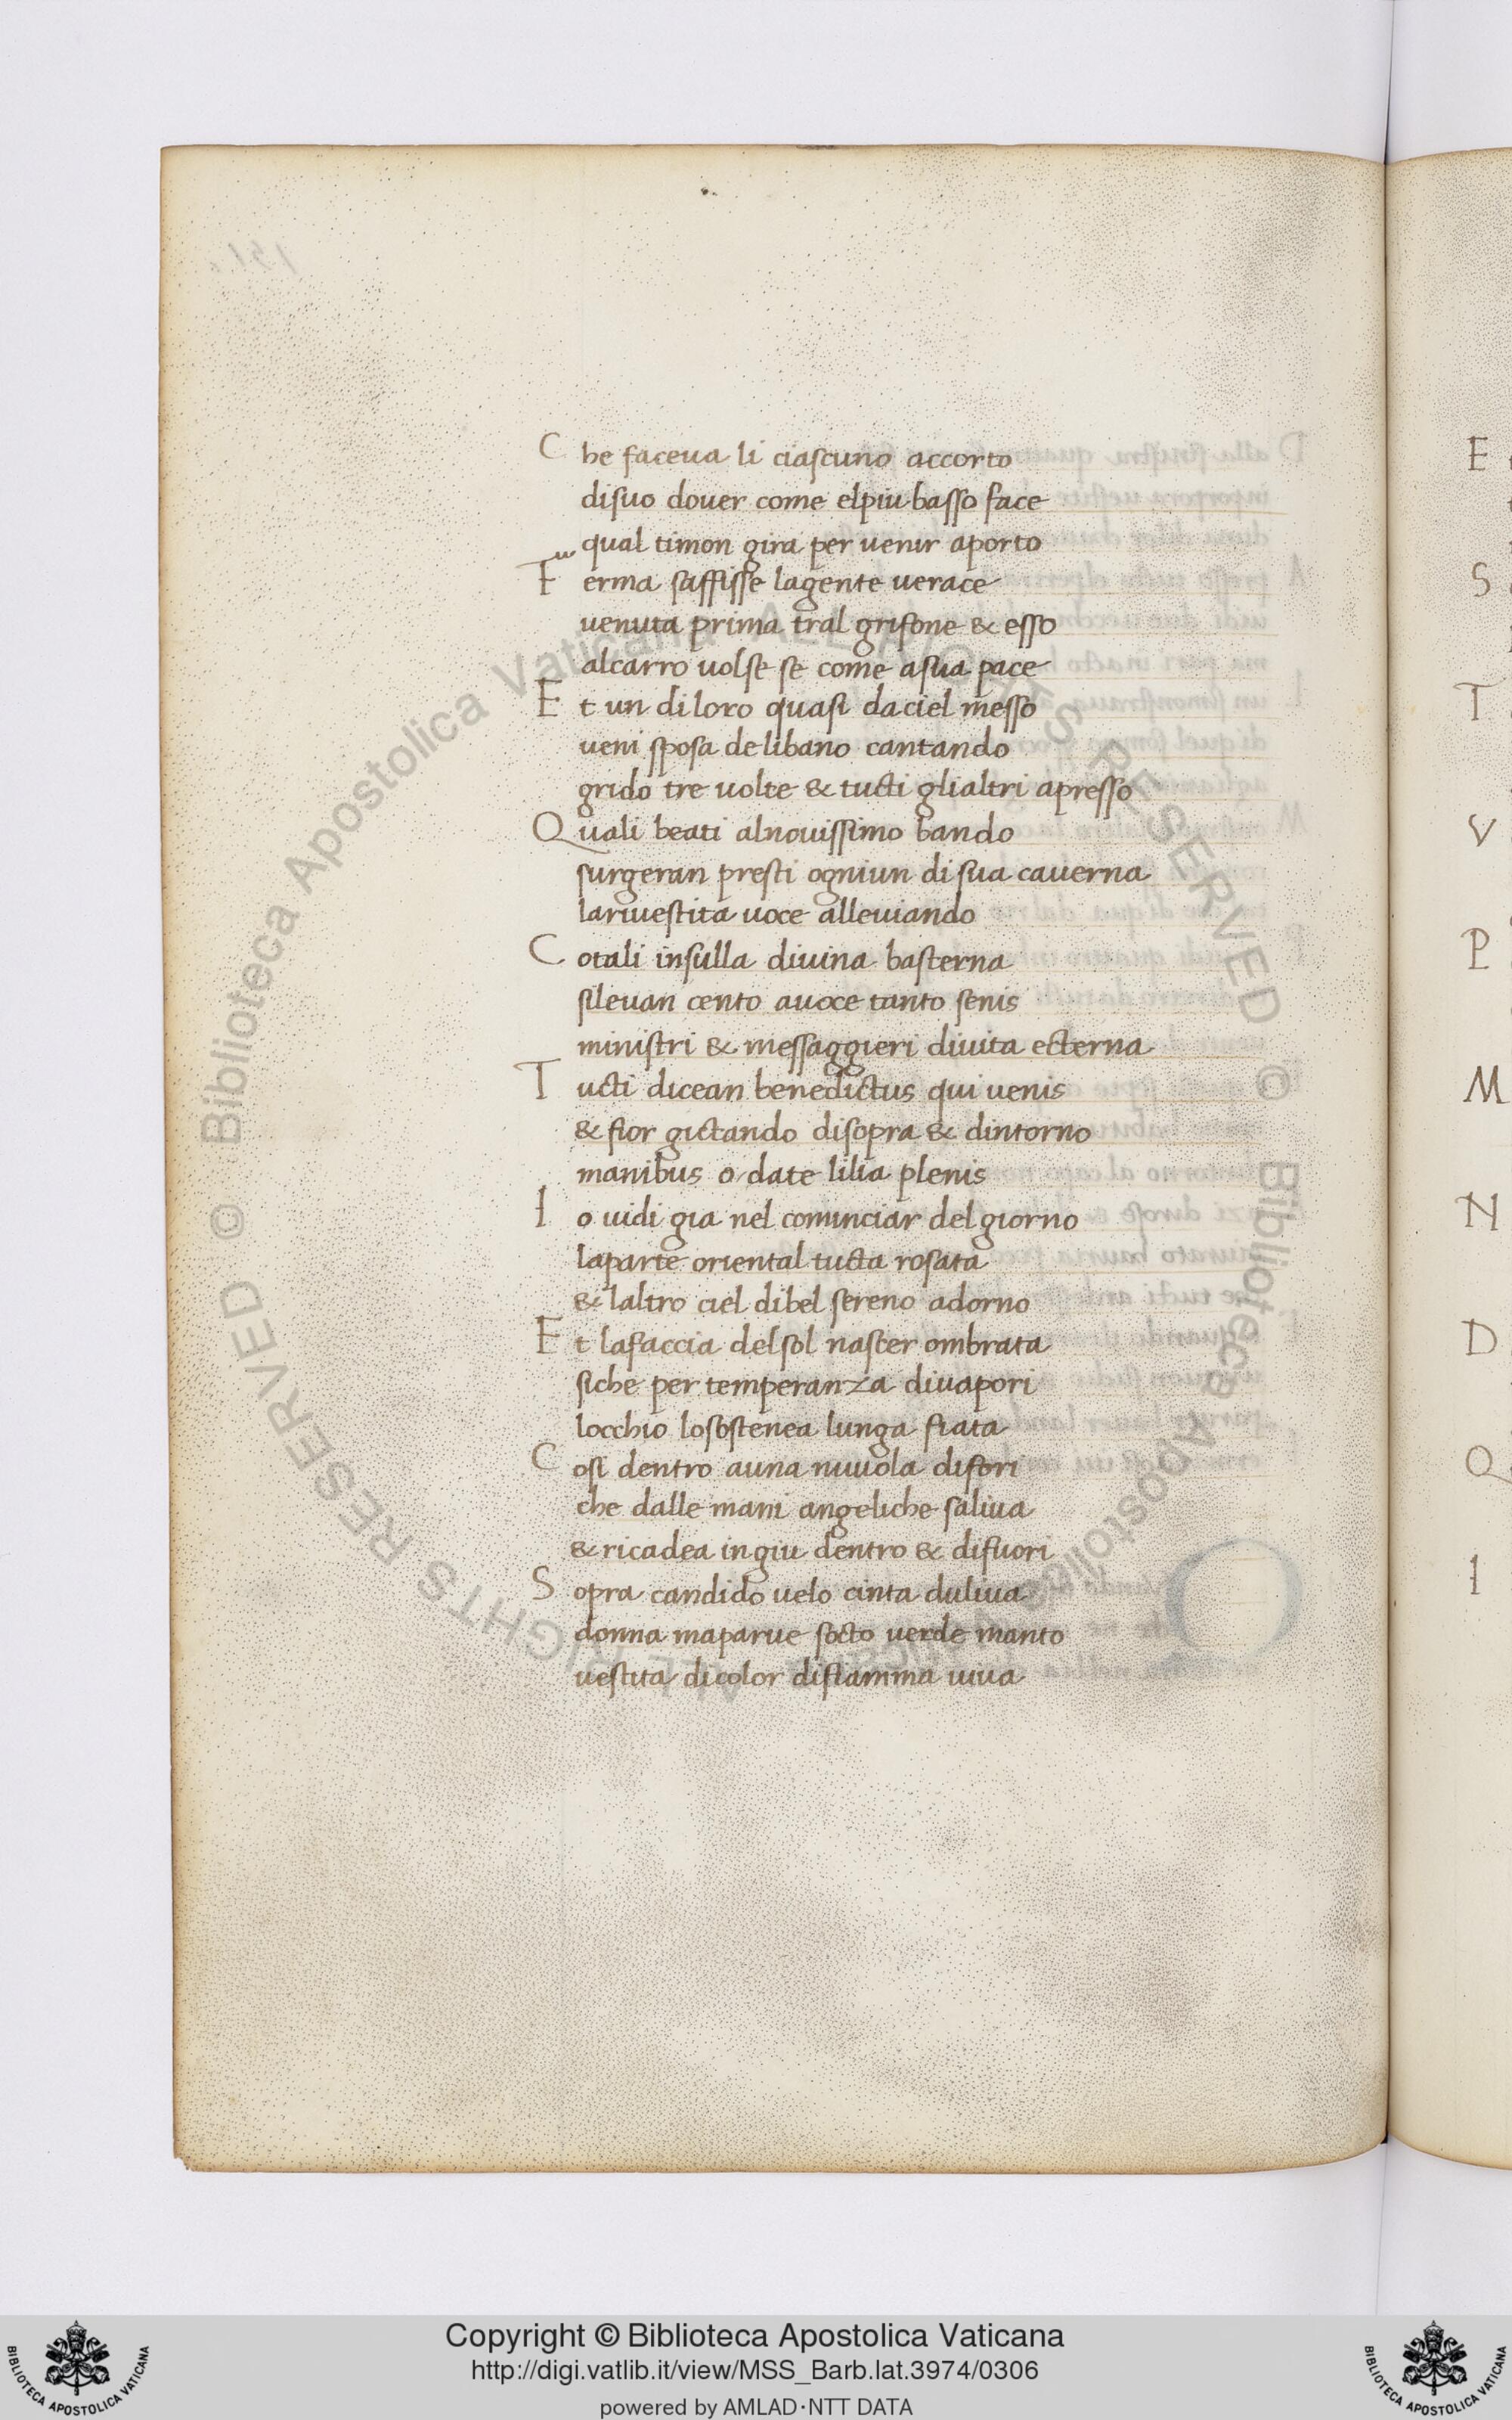 C he faceua li ciaſcuno accorto
diſuo douer come elpiu baſſo face
qual timon gira per uenir aporto
F erma ſaffiſſe lagente uerace
uenuta prima tral grifone & eſſo
alcarro uolſe ſe come aſua pace
E t un di loro quaſi daciel meſſo
ueni ſpoſa delibano cantando
grido tre uolte & tucti glialtri apreſſo
Q uali beati alnouiſſimo bando
ſurgeran preſti ogniun di ſua cauerna
lariueſtita uoce alleuiando
C otali inſulla diuina baſterna
ſileuan cento auoce tanto ſenis
miniſtri & meſſaggieri diuita ecterna
T ucti dicean benedictus qui uenis
& fior gictando diſopra & dintorno
manibus o date lilia plenis
I o uidi gia nel cominciar del giorno
laparte oriental tucta roſata
& laltro ciel dibel ſereno adorno
E t lafaccia delſol naſcer ombrata
ſiche per temperanza diuapori
locchio loſoſtenea lunga fiata
C oſi dentro auna nuuola difori
che dalle mani angeliche ſaliua
& ricadea ingiu dentro & difuori
S opra candido uelo cinta duliua
donna maparue ſocto uerde manto
ueſtita dicolor difiamma uiua
E
S
T
V
P
M
N
D
Q
I
© Biblioteca Apostolica Vaticana ALL RIGHTS RESERVED © Biblioteca Apostolica Vaticana ALL RIGHTS RESERVED
Copyright © Biblioteca Apostolica Vaticana
http://digi.vatlib.it/view/MSS_Barb.lat.3974/0306
powered by AMLAD·NTT DATA
BIBLIOTECA APOSTOLICA VATICANA
BIBLIOTECA APOSTOLICA VATICANA